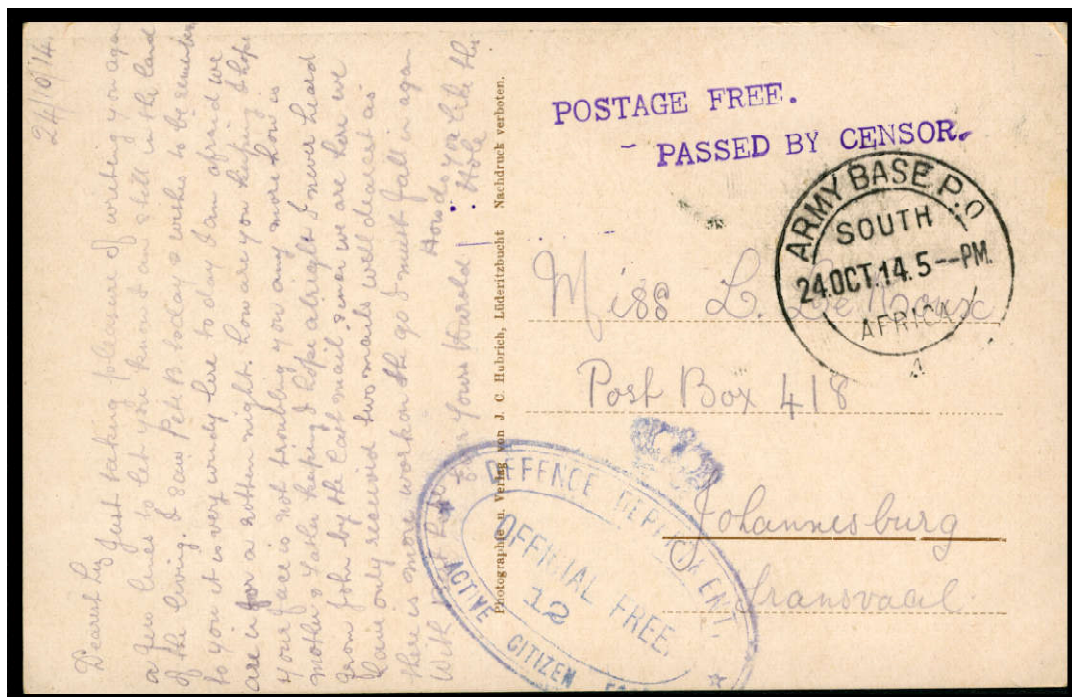 24/10/14.
Dearest Liz Just taking pleasure of writeing you again
a few lines to let you know I am still in the land
of the living. I saw Pete B today & wishes to be
to you it is very windy here to day I am afraid we
are in for a rotten night. how are you keeping I hope
your face is not troubling you any more how is
mother & Father keeping I hope alright I never heard
from John by the last mail since we are here we
have only received two mails well dearest as
there is more work on the go I must fall in again
With Best
Yours Harold
How do you like the
Hole
Photographie u. Verlag von J. C. Hubrich, Lüderitzbucht Nachdruck verboten.
POSTAGE FREE.
PASSED BY CENSOR.
ARMY BASE P.O
SOUTH
24.OCT.14.5--PM.
AFRICA
4
Miss L.
Post Box 418
Johannesburg
Transvaal.
DEFENCE DEPARTMENT.
OFFICIAL FREE.
12
ACTIVE CITIZEN